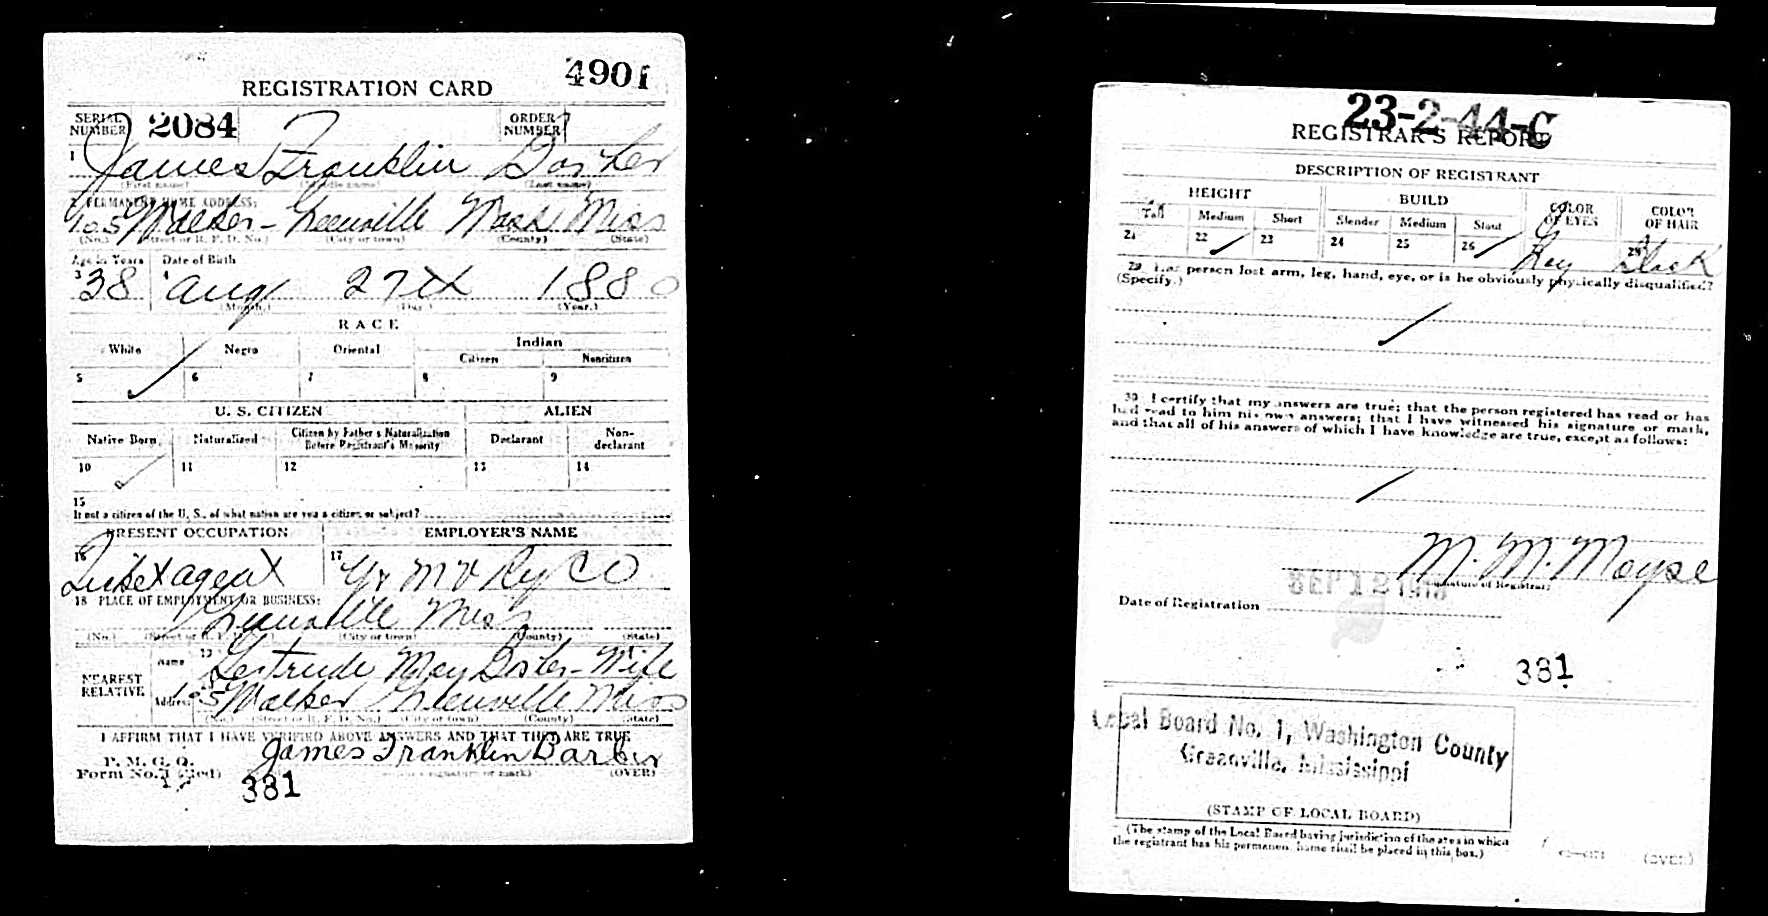 REGISTRATION CARD 4901
SERIAL NUMBER 2084 ORDER NUMBER
1 James Franklin
(First name) (Middle name) (Last name)
2 PERMANENT HOME ADDRESS:
105 Walker - Greenville Wash Miss
(No.) (Street or R. F. D. No.) (City or town) (County) (State)
Age in Years Date of Birth
3 38 4 Aug 27th 1880
(Month.) (Day.) (Year.)
RACE
White Negro Oriental Indian
Citizen Noncitizen
5 6 7 8 9
U. S. CITIZEN ALIEN
Native Born Naturalized Citizen by Father's Naturalization Before Registrant's Majority Declarant Non-declarant
10 11 12 13 14
15
If not a citizen of the U. S., of what nation are you a citizen or subject?
PRESENT OCCUPATION EMPLOYER'S NAME
16 Ticket agent 17 Y & M V Ry CO
18 PLACE OF EMPLOYMENT OR BUSINESS:
Greenville Miss
(No.) (Street or R. F. D. No.) (City or town) (County) (State)
NEAREST RELATIVE
Name 19 Gertrude May - Wife
Address 20 105 Walker Greenville Miss
(No.) (Street or R. F. D. No.) (City or town) (County) (State)
I AFFIRM THAT I HAVE VERIFIED ABOVE ANSWERS AND THAT THEY ARE TRUE
P. M. G. O.
Form No. 1 (Red) James Franklin Barber
(Registrant's signature or mark) (OVER)
381
23-2-44-C
REGISTRAR'S REPORT
DESCRIPTION OF REGISTRANT
HEIGHT BUILD COLOR OF EYES COLOR OF HAIR
Tall Medium Short Slender Medium Stout
21 22 23 24 25 26 Gray 28 Black
29 Has person lost arm, leg, hand, eye, or is he obviously physically disqualified?
(Specify.)
30 I certify that my answers are true; that the person registered has read or has
had read to him his own answers; that I have witnessed his signature or mark,
and that all of his answers of which I have knowledge are true, except as follows:
M. M. Moyse
(Signature of Registrar)
Date of Registration SEP 12 1918
381
Local Board No. 1, Washington County
Greenville, Mississippi
(STAMP OF LOCAL BOARD)
(The stamp of the Local Board having jurisdiction of the area in which
the registrant has his permanent home shall be placed in this box.)
(OVER)